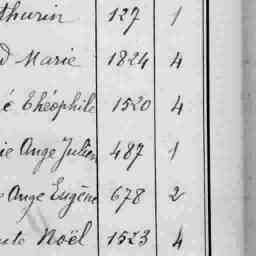 thurin 127 1
d Marie 1824 4
é Théophile 1520 4
ie Ange Julien 487 1
Ange Eugène 678 2
Noël 1523 4